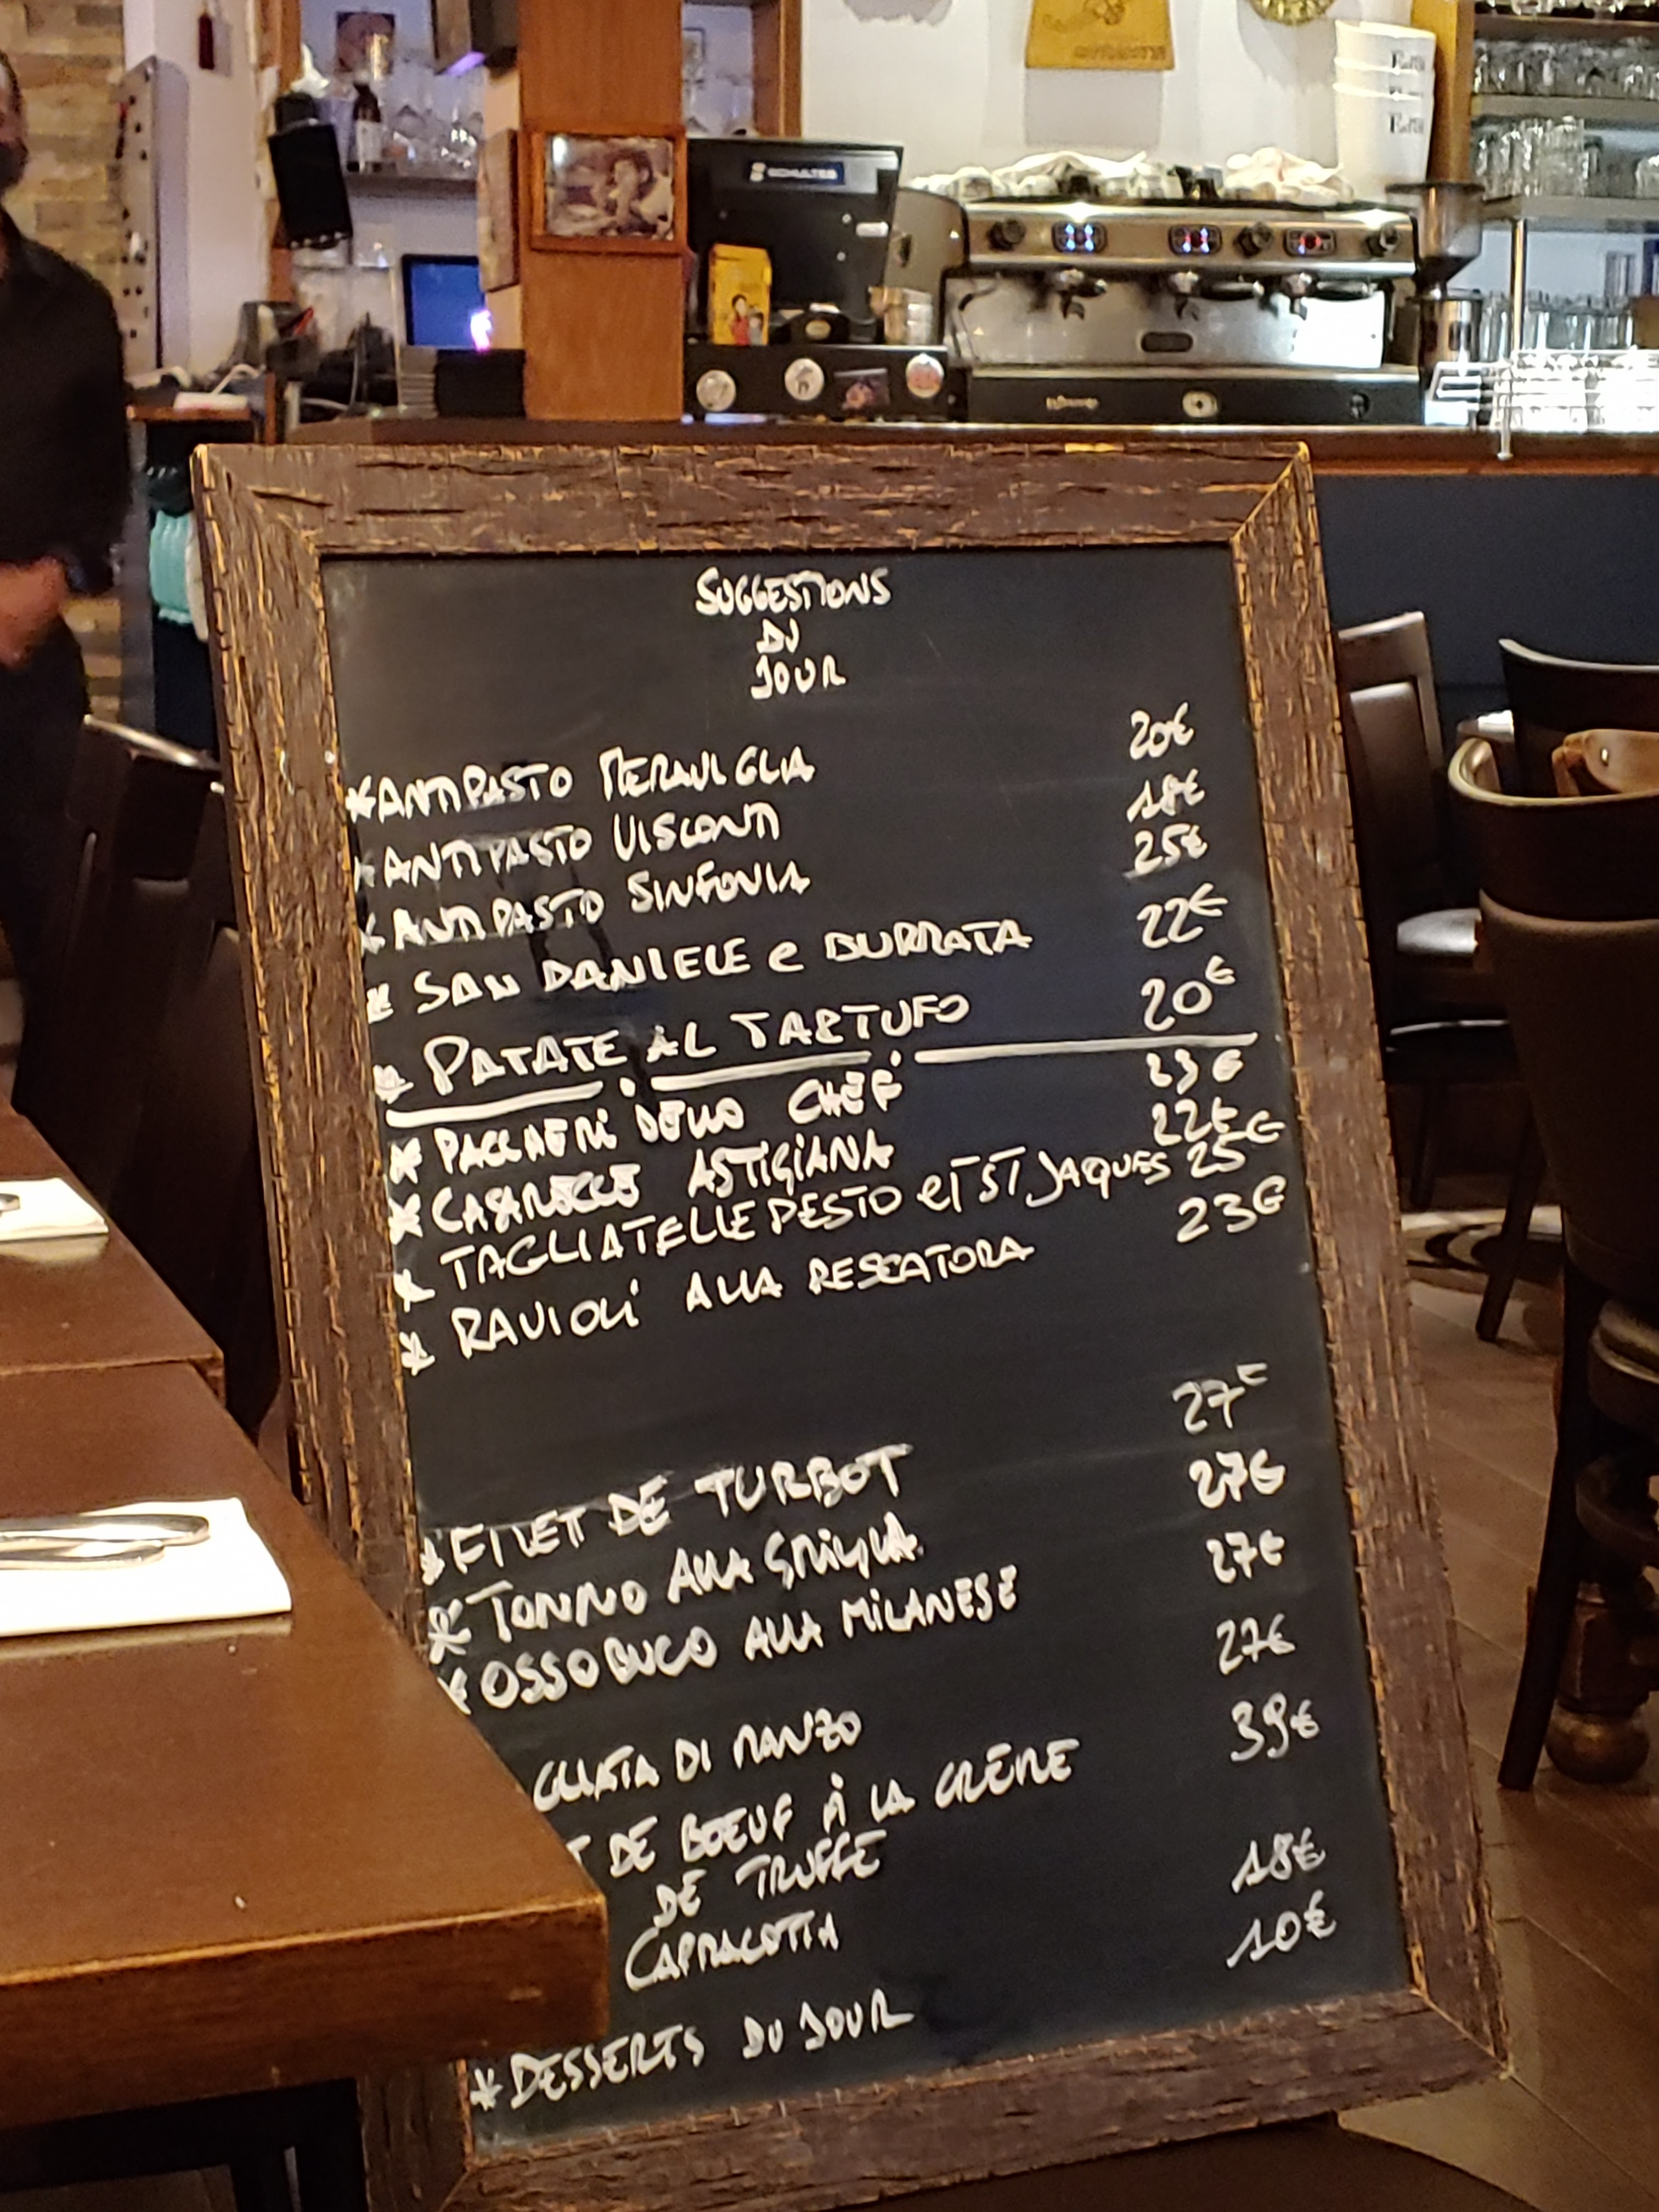 SCHULTES
SUGGESTIONS
DU
JOUR
*ANTIPASTO MERAVIGLIA 20€
*ANTIPASTO VISCONTI 18€
*ANTIPASTO SINFONIA 25€
* SAN DANIELE e BURRATA 22€
* PATATE AL TARTUFO 20€
* PACCHERI DELLO CHEF 23€
* CASARECCE ASTIGIANA 22€
* TAGLIATELLE PESTO eT ST JAQUES 25€
* RAVIOLI ALLA PESCATORA 23€
*FILET DE TURBOT 27€
*TONNO ALLA GRIGLIA 27€
*OSSOBUCO ALLA MILANESE 27€
GLIATA DI MANZO 27€
T DE BOEUF À LA CRÈME 39€
DE TRUFFE
CAPRACOTTA 18€
*DESSERTS DU JOUR 10€